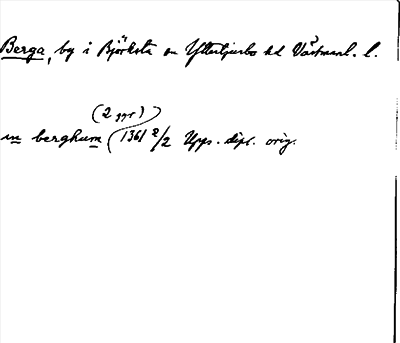 Berga, by i Björksta sn Yttertjurbo hd Västmanl. l.
(2 ggr)
in berghum 1361 2/2 Upps. dipl. orig.